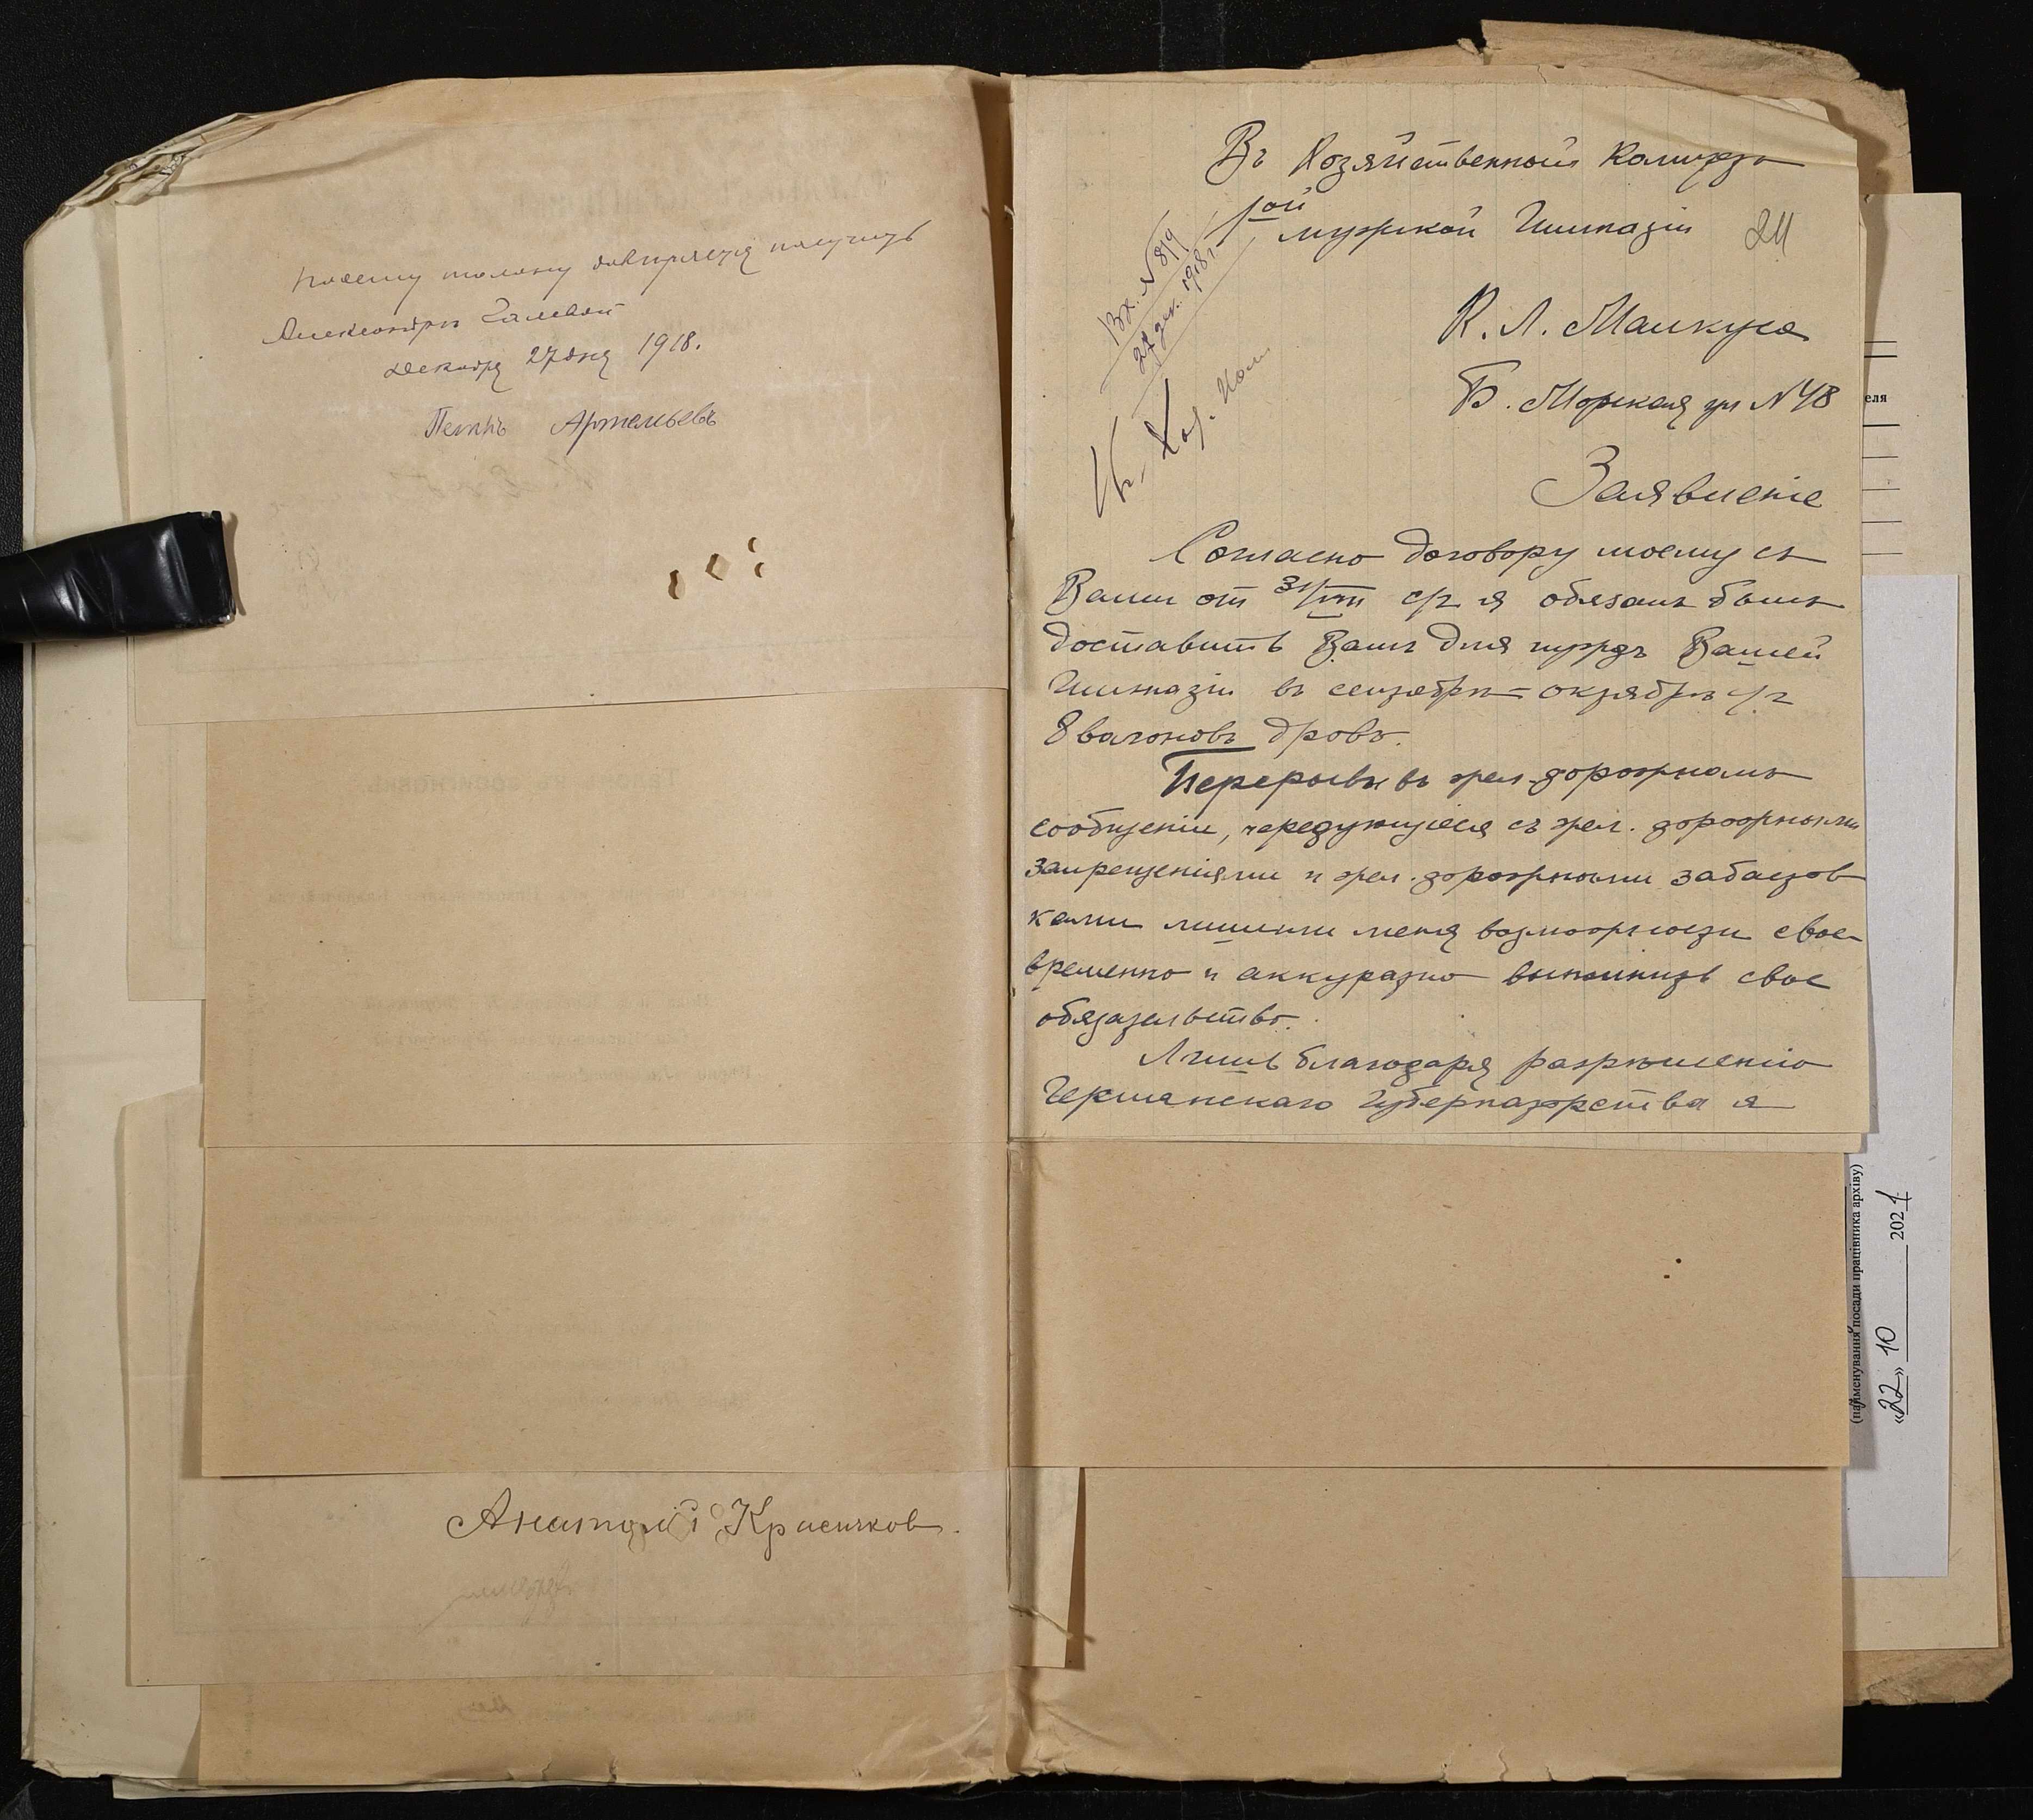 по сему талону доверяется получить
Александры Галевой
декабря 27 дня 1918.
Петръ Артемьевъ
Анатолій Красичков.
Въ Хозяйственный Комитетъ
1ой
мужской Гимназіи
24
К. Л. Маикуса
Б. Морская ул N 48
Вх. N 819
27 дек. 1918 г.
Къ Хоз. Ком
Заявленіе
Согласно договору моему съ
Вами от 31/VIII с/г я обязанъ былъ
доставить Вамъ для нуждъ Вашей
Гимназіи въ сентябрѣ – октябрѣ с/г
8 вагоновъ дровъ.
Перерывы въ жел. дорожномъ
сообщеніи, чередующіеся съ жел. дорожными
запрещеніями и жел. дорожными забастов
ками лишили меня возможности свое-
временно и аккуратно выполнить свое
обязательство.
Лишь благодаря разрѣшенію
Германскаго Губернаторства я
еля
(найменування посади працівника архіву)
«22» 10 2021